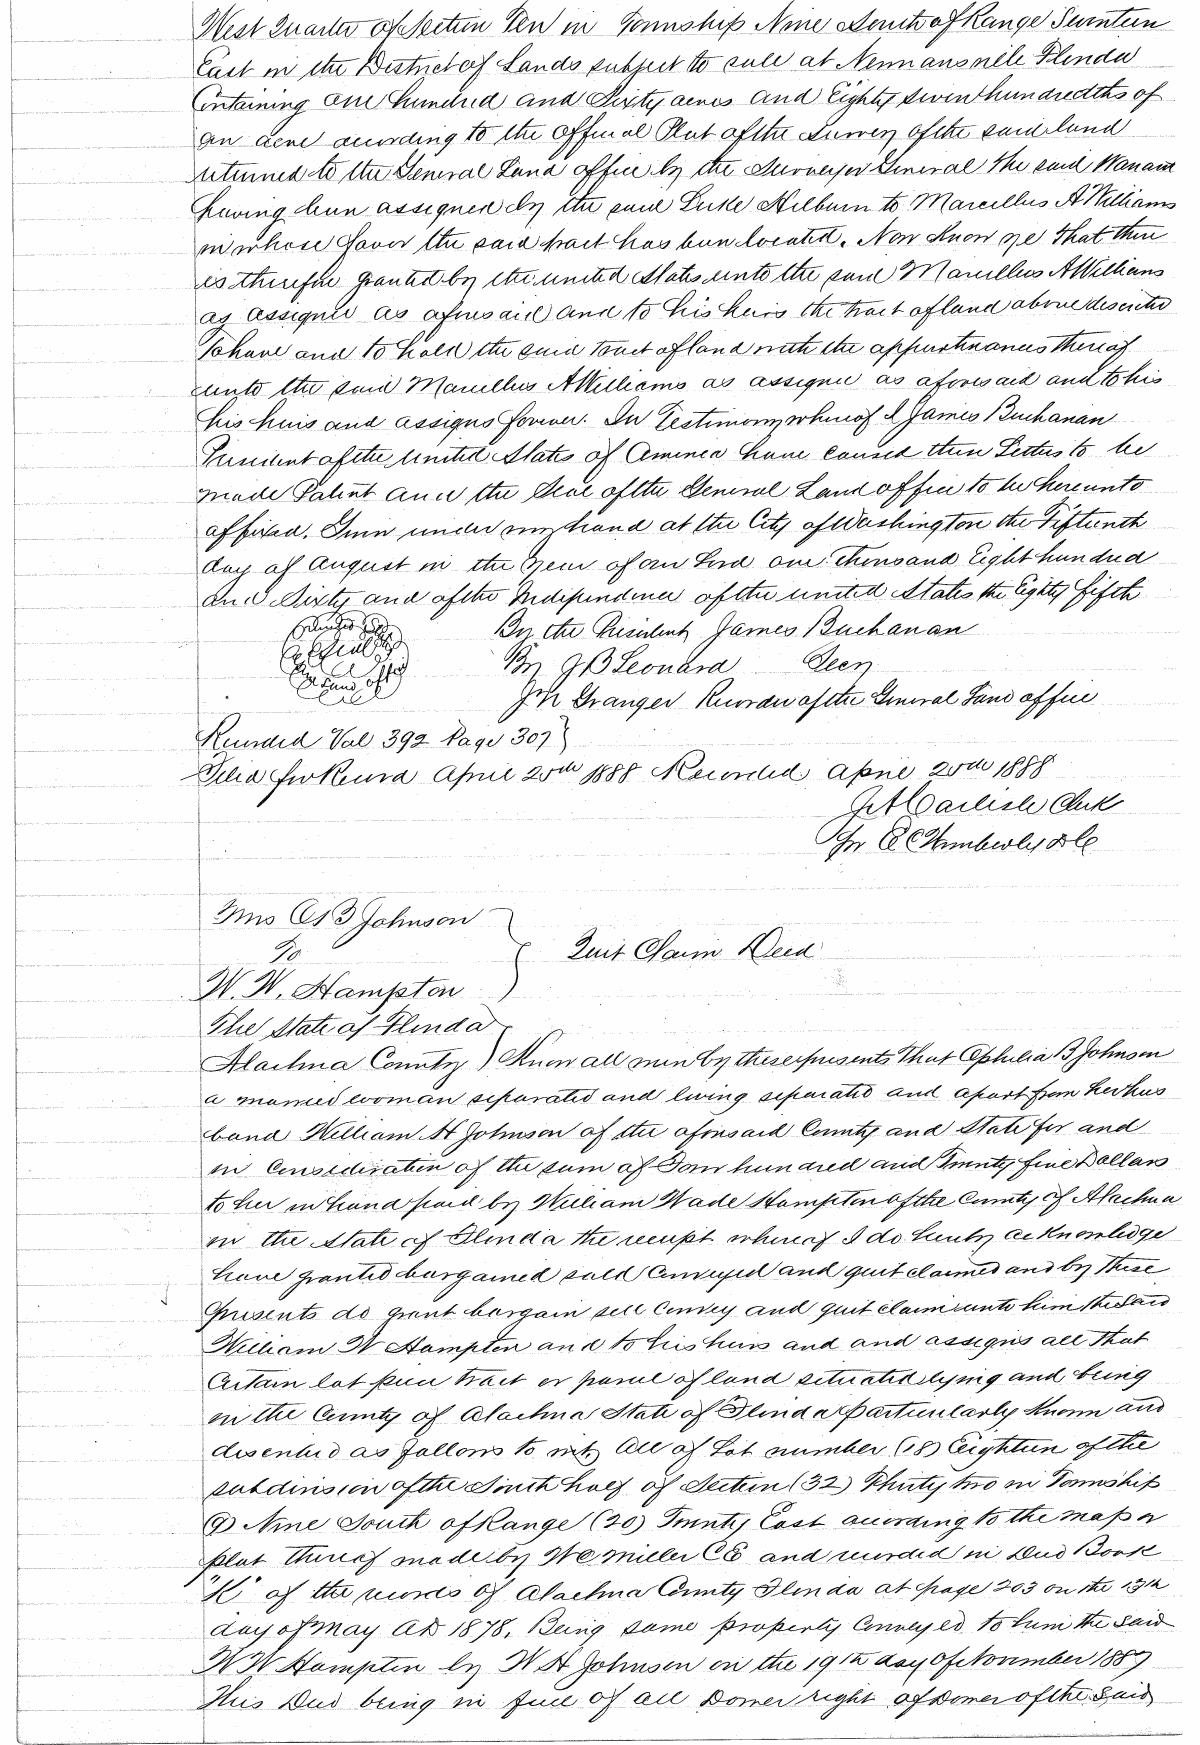 West Quarter of Section Ten in Township Nine South of Range Seventeen
East in the District of Lands subject to sale at Newnansville Florida
Containing One hundred and Sixty acres and Eighty seven hundredths of
an acre according to the official Plat of the Survey of the said land
returned to the General Land office by the Surveyor General the said Warrant
having been assigned by the said Luke Hilburn to Marcellus A Williams
in whose favor the said tract has been located. Now Know ye That there
is therefore granted by the united States unto the said Marcellus A Williams
as assignee as aforesaid and to his heirs the tract of land above described
To have and to hold the said tract of land with the appurtenances thereof
unto the said Marcellus A Williams as assignee as aforesaid and to his
his heirs and assigns forever. In Testimony whereof I James Buchanan
President of the United States of America have caused these Letters to be
made Patent and the Seal of the General Land office to be hereunto
affixed. Given under my hand at the City of Washington the Fifteenth
day of August in the Year of our Lord one thousand Eight hundred
and Sixty and of the Independence of the united States the Eighty fifth
By the President James Buchanan
By J B Leonard Secy
J N Granger Recorder of the General Land office
Recorded Vol 392 Page 307
Filed for Record April 20th 1888 Recorded April 20th 1888
J A Carlisle Clerk
Per Wimberly D C
Mrs O B Johnson
To
Quit Claim Deed
W. W. Hampton
The State of Florida
Alachua County ) Know all men by these presents That Ophelia B Johnson
a married woman separated and living separate and apart from her hus
band William H Johnson of the aforesaid County and State for and
in Consideration of the sum of Four hundred and Twenty five Dollars
to her in hand paid by William Wade Hampton of the County of Alachua
in the State of Florida the receipt whereof I do hereby acknowledge
have granted bargained sold Conveyed and quit claimed and by These
presents do grant bargain sell Convey and quit claim unto him the Said
William W Hampton and to his heirs and and assigns all That
Certain lot piece tract or parcel of land situated lying and being
in the County of Alachua State of Florida particularly Known and
described as follows to wit, All of Lot number (18) Eighteen of the
subdivision of the South half of Section (32) Thirty two in Township
(9) Nine South of Range (20) Twenty East according to the map or
plat thereof made by W C Miller C E and recorded in Deed Book
"K" of the records of Alachua County Florida at page 203 on the 13th
day of May AD 1878. Being same property Conveyed to him the Said
W W Hampton by W H Johnson on the 19th day of November 1887
This Deed being in full of all Dower right of Dower of the Said